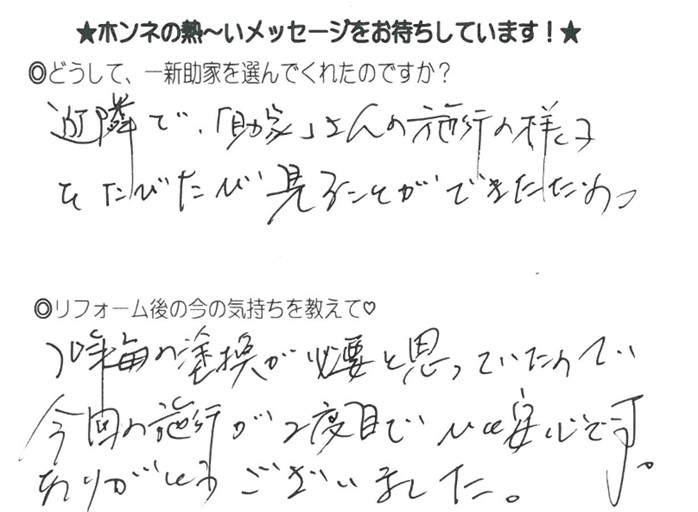 ★ホンネの熱～いメッセージをお待ちしています！★
◎どうして、一新助家を選んでくれたのですか？
近隣で、「助家」さんの施行の様子
をたびたび見ることができたため
◎リフォーム後の今の気持ちを教えて♡
毎の塗換が必要と思っていたので
今回の施行が2度目で 安心です。
ありがとうございました。